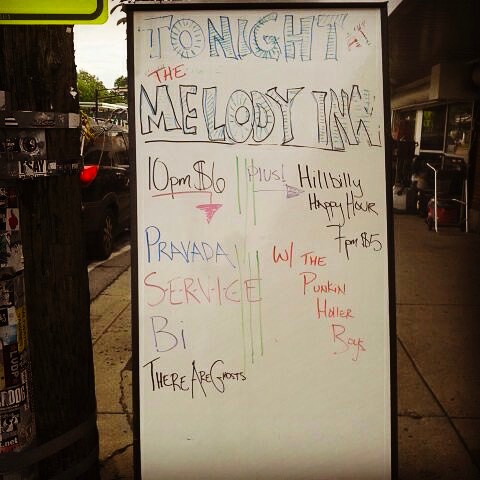 TONIGHT
THE
MELODY INN
10pm $6
PRAVADA
SERVICE
Bi
THERE ARE GHOSTS
PLUS!
Hillbilly
HAPPY HOUR
7pm $5
W/ THE
PUNKIN
Holler
Boys